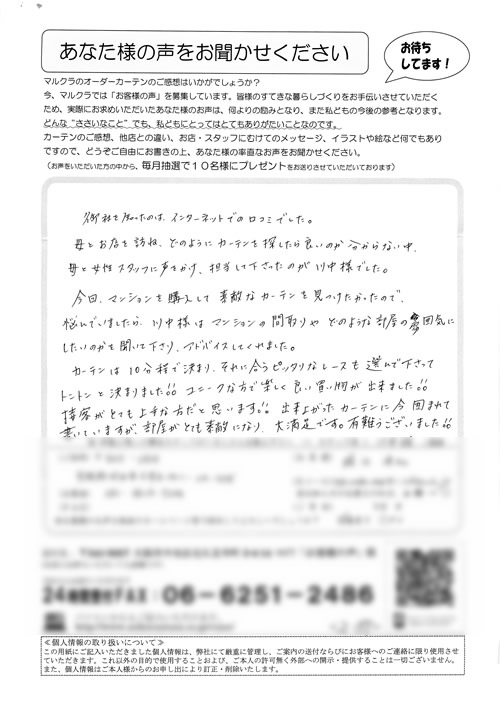 あなた様の声をお聞かせください
お待ち
してます！
マルクラのオーダーカーテンのご感想はいかがでしょうか？
今、マルクラでは「お客様の声」を募集しています。皆様のすてきな暮らしづくりをお手伝いさせていただく
ため、実際にお求めいただいたあなた様のお声は、何よりの励みとなり、また私どもの今後の参考となります。
どんな“ささいなこと”でも、私どもにとってはとてもありがたいことなのです。
カーテンのご感想、他店との違い、お店・スタッフにむけてのメッセージ、イラストや絵など何でもあり
ですので、どうぞご自由にお書きの上、あなた様の率直なお声をお聞かせください。
（お声をいただいた方の中から、毎月抽選で１０名様にプレゼントをお送りさせていただいております）
御社を知ったのは、インターネットでの口コミでした。
母とお店を訪ね、どのようにカーテンを探したら良いのか分からない中、
母と女性スタッフに声をかけ、担当して下さったのが川中様でした。
今回、マンションを購入して素敵なカーテンを見つけたかったので、
悩んでいましたら、川中様はマンションの間取りやどのような部屋の雰囲気に
したいのかを聞いて下さり、アドバイスしてくれました。
カーテンは10分程で決まり、それに合うピッタリなレースも選んで下さって
トントンと決まりました!! ユニークな方で楽しく良い買い物が出来ました!!
接客がとても上手な方だと思います!! 出来上がったカーテンに今囲まれて
書いていますが、部屋がとても素敵になり、大満足です。有難うございました!!
24時間受付FAX：06-6251-2486
≪個人情報の取り扱いについて≫
この用紙にご記入いただきました個人情報は、弊社にて厳重に管理し、ご案内の送付ならびにお客様へのご連絡に限り使用させ
ていただきます。これ以外の目的で使用することおよび、ご本人の許可無く外部への開示・提供することは一切ございません。
また、個人情報はご本人様からのお申し出により訂正・削除いたします。